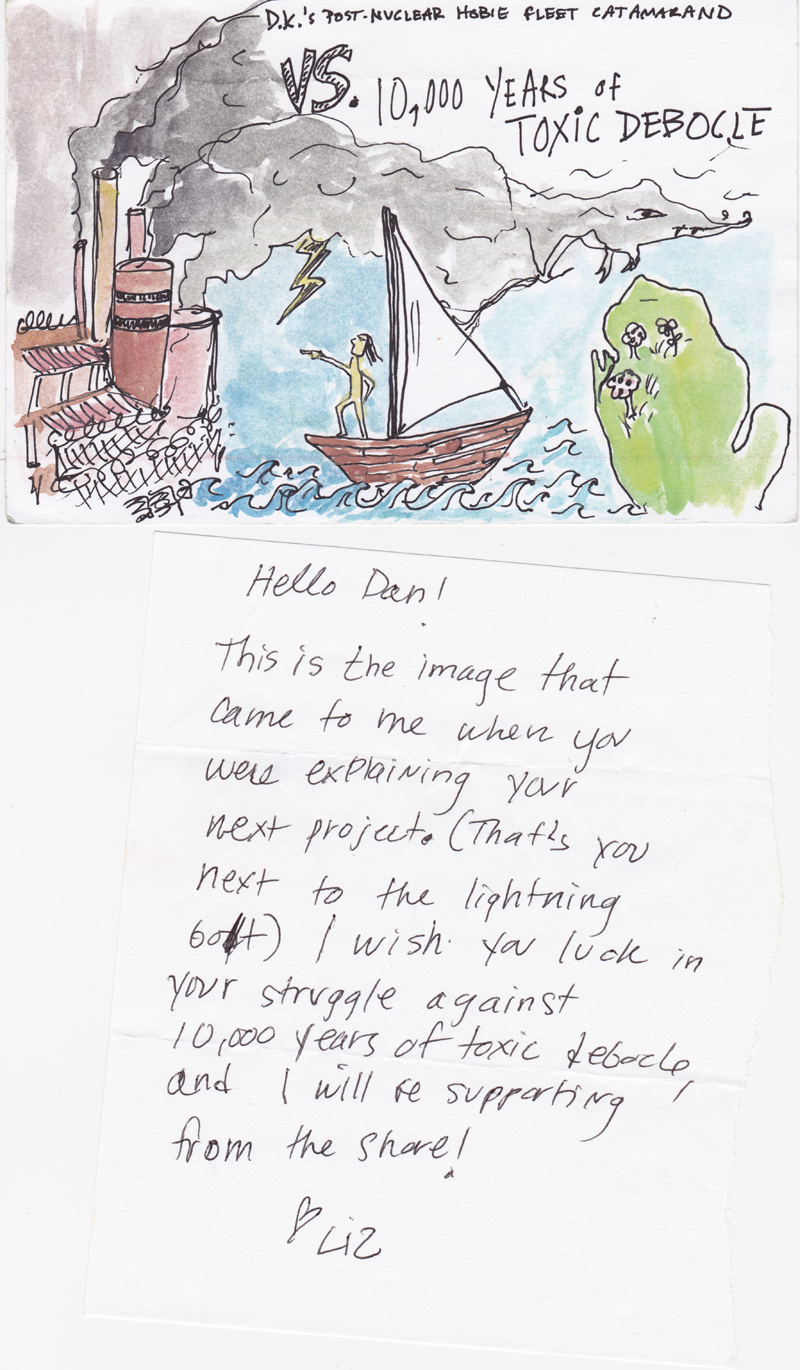 D.K.'S POST-NUCLEAR HOBIE FLEET CATAMARAND
VS. 10,000 YEARS of
TOXIC DEBOCLE
Hello Dan!
This is the image that
came to me when you
were explaining your
next project. (That's you
next to the lightning
bolt) I wish you luck in
your struggle against
10,000 years of toxic debocle,
and I will be supporting
from the shore!
♡ Liz